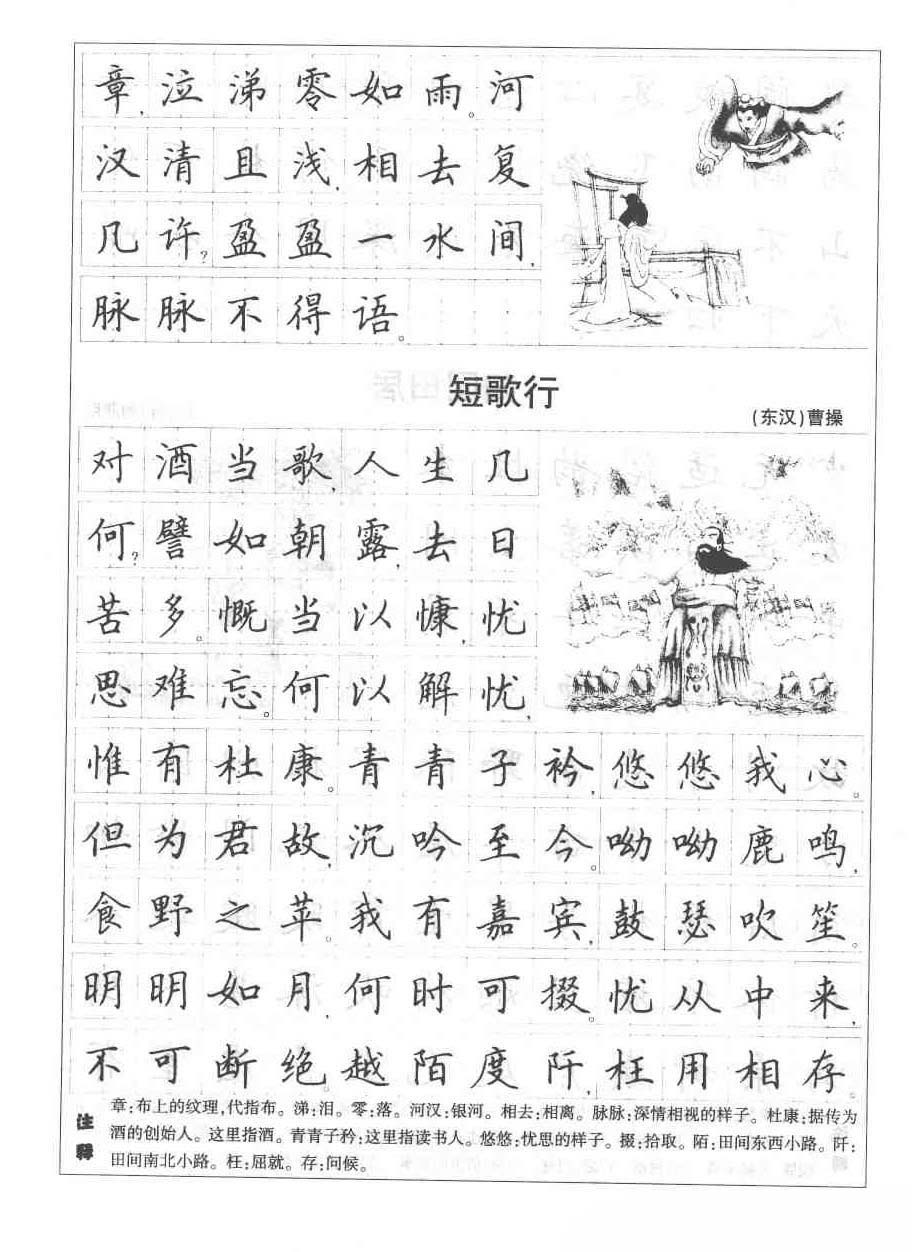 章,泣涕零如雨。河
汉清且浅,相去复
几许?盈盈一水间,
脉脉不得语。
短歌行
(东汉)曹操
对酒当歌,人生几
何?譬如朝露,去日
苦多。慨当以慷,忧
思难忘。何以解忧,
惟有杜康。青青子衿,悠悠我心。
但为君故,沉吟至今。呦呦鹿鸣,
食野之苹。我有嘉宾,鼓瑟吹笙。
明明如月,何时可掇。忧从中来,
不可断绝。越陌度阡,枉用相存。
注释
章:布上的纹理,代指布。涕:泪。零:落。河汉:银河。相去:相离。脉脉:深情相视的样子。杜康:据传为
酒的创始人。这里指酒。青青子矜:这里指读书人。悠悠:忧思的样子。掇:拾取。陌:田间东西小路。阡:
田间南北小路。枉:屈就。存:问候。